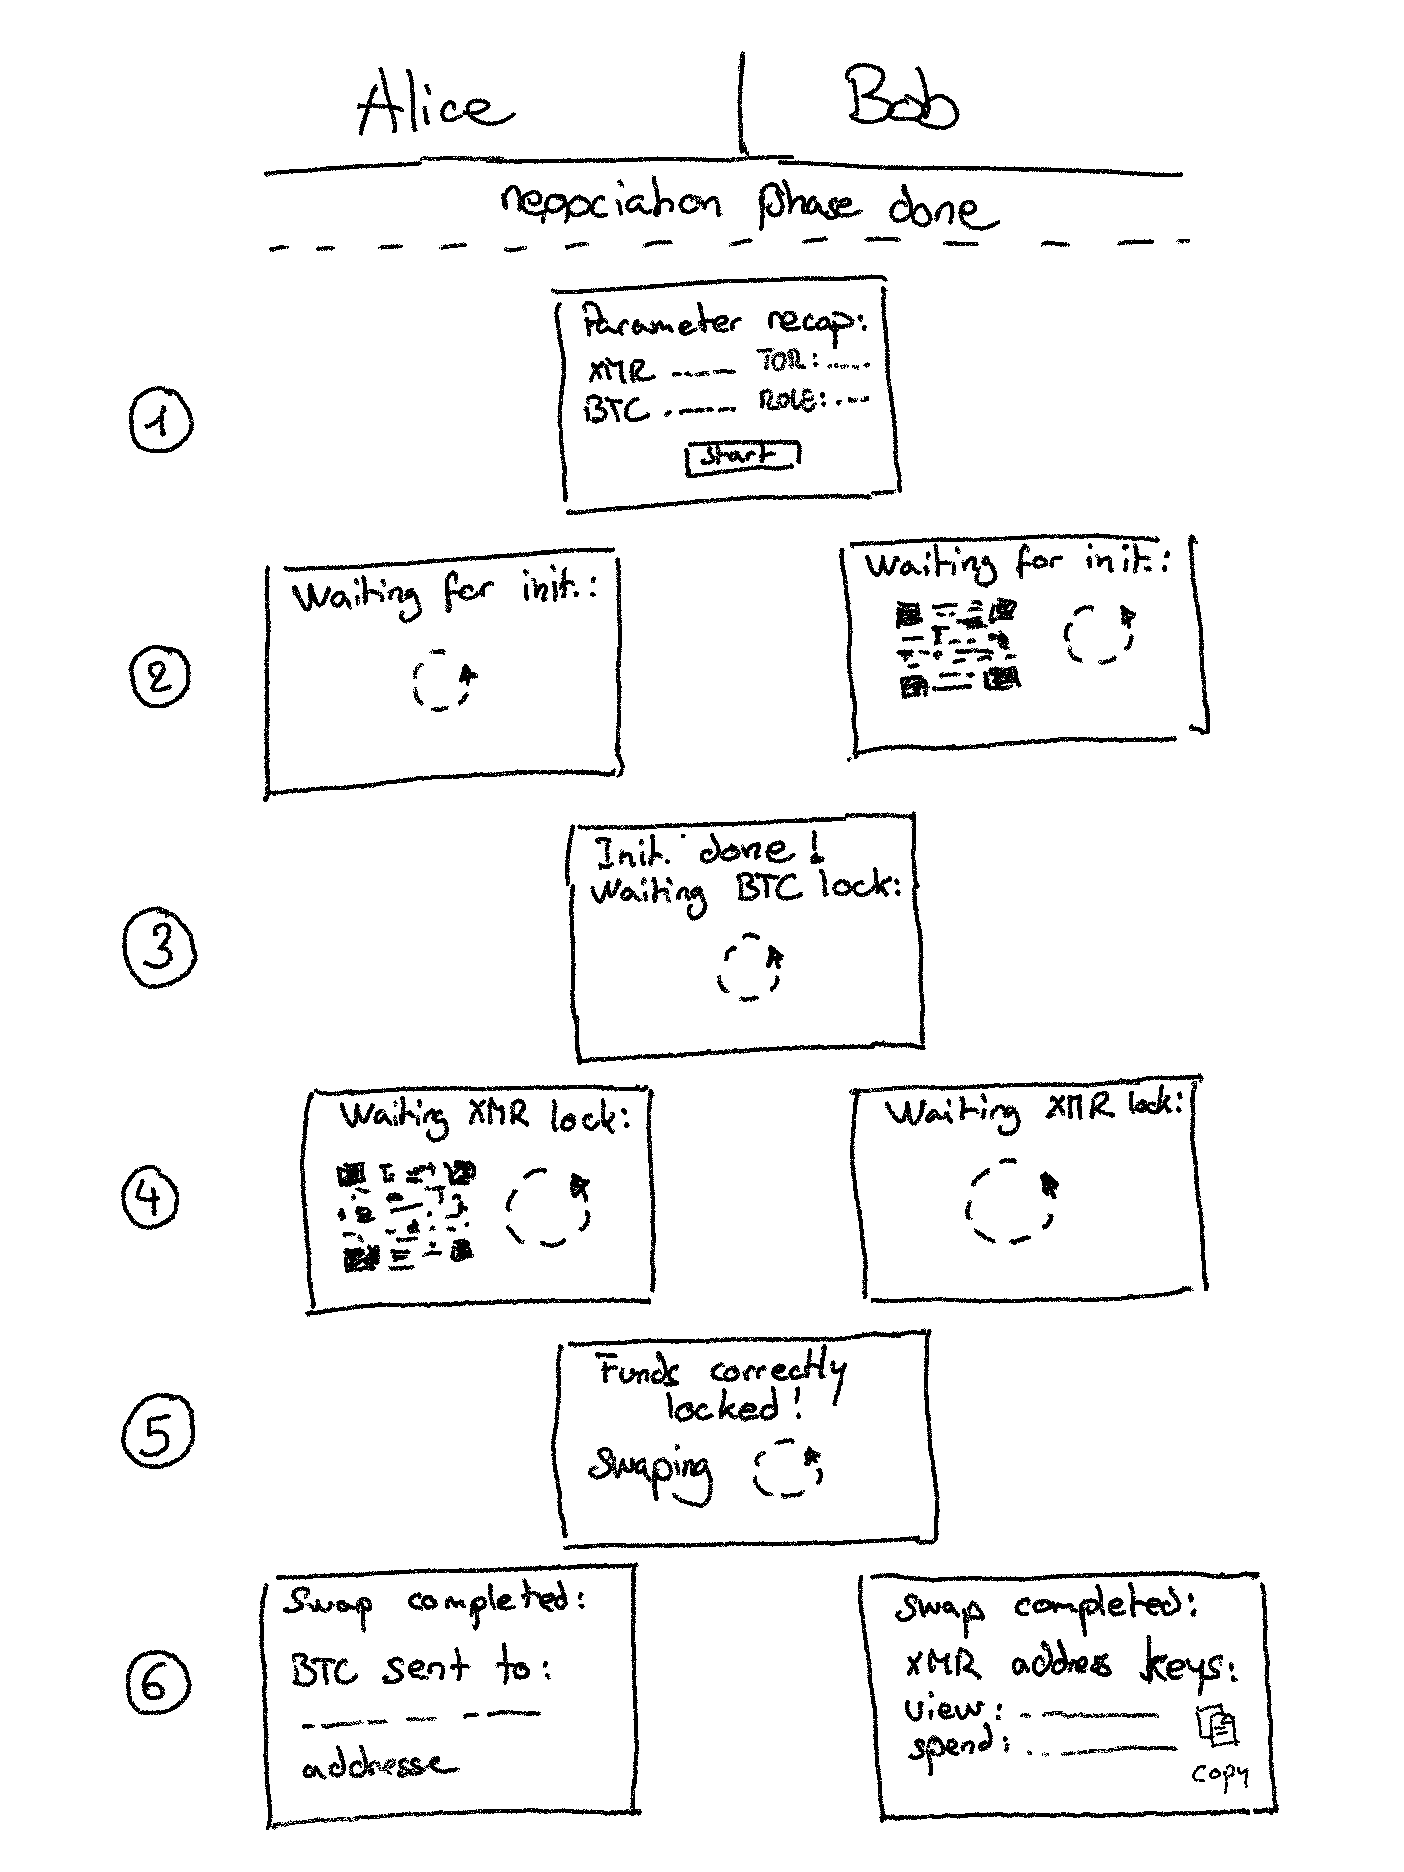 Alice | Bob
negociation phase done
1
Parameter recap:
XMR ----- TOR: .....
BTC ------ ROLE: ....
Start
2
Waiting for init.:
Waiting for init.:
3
Init. done!
Waiting BTC lock:
4
Waiting XMR lock:
Waiting XMR lock:
5
Funds correctly
locked!
Swaping
6
Swap completed:
BTC sent to:
addresse
Swap completed:
XMR address keys:
view:
spend:
copy